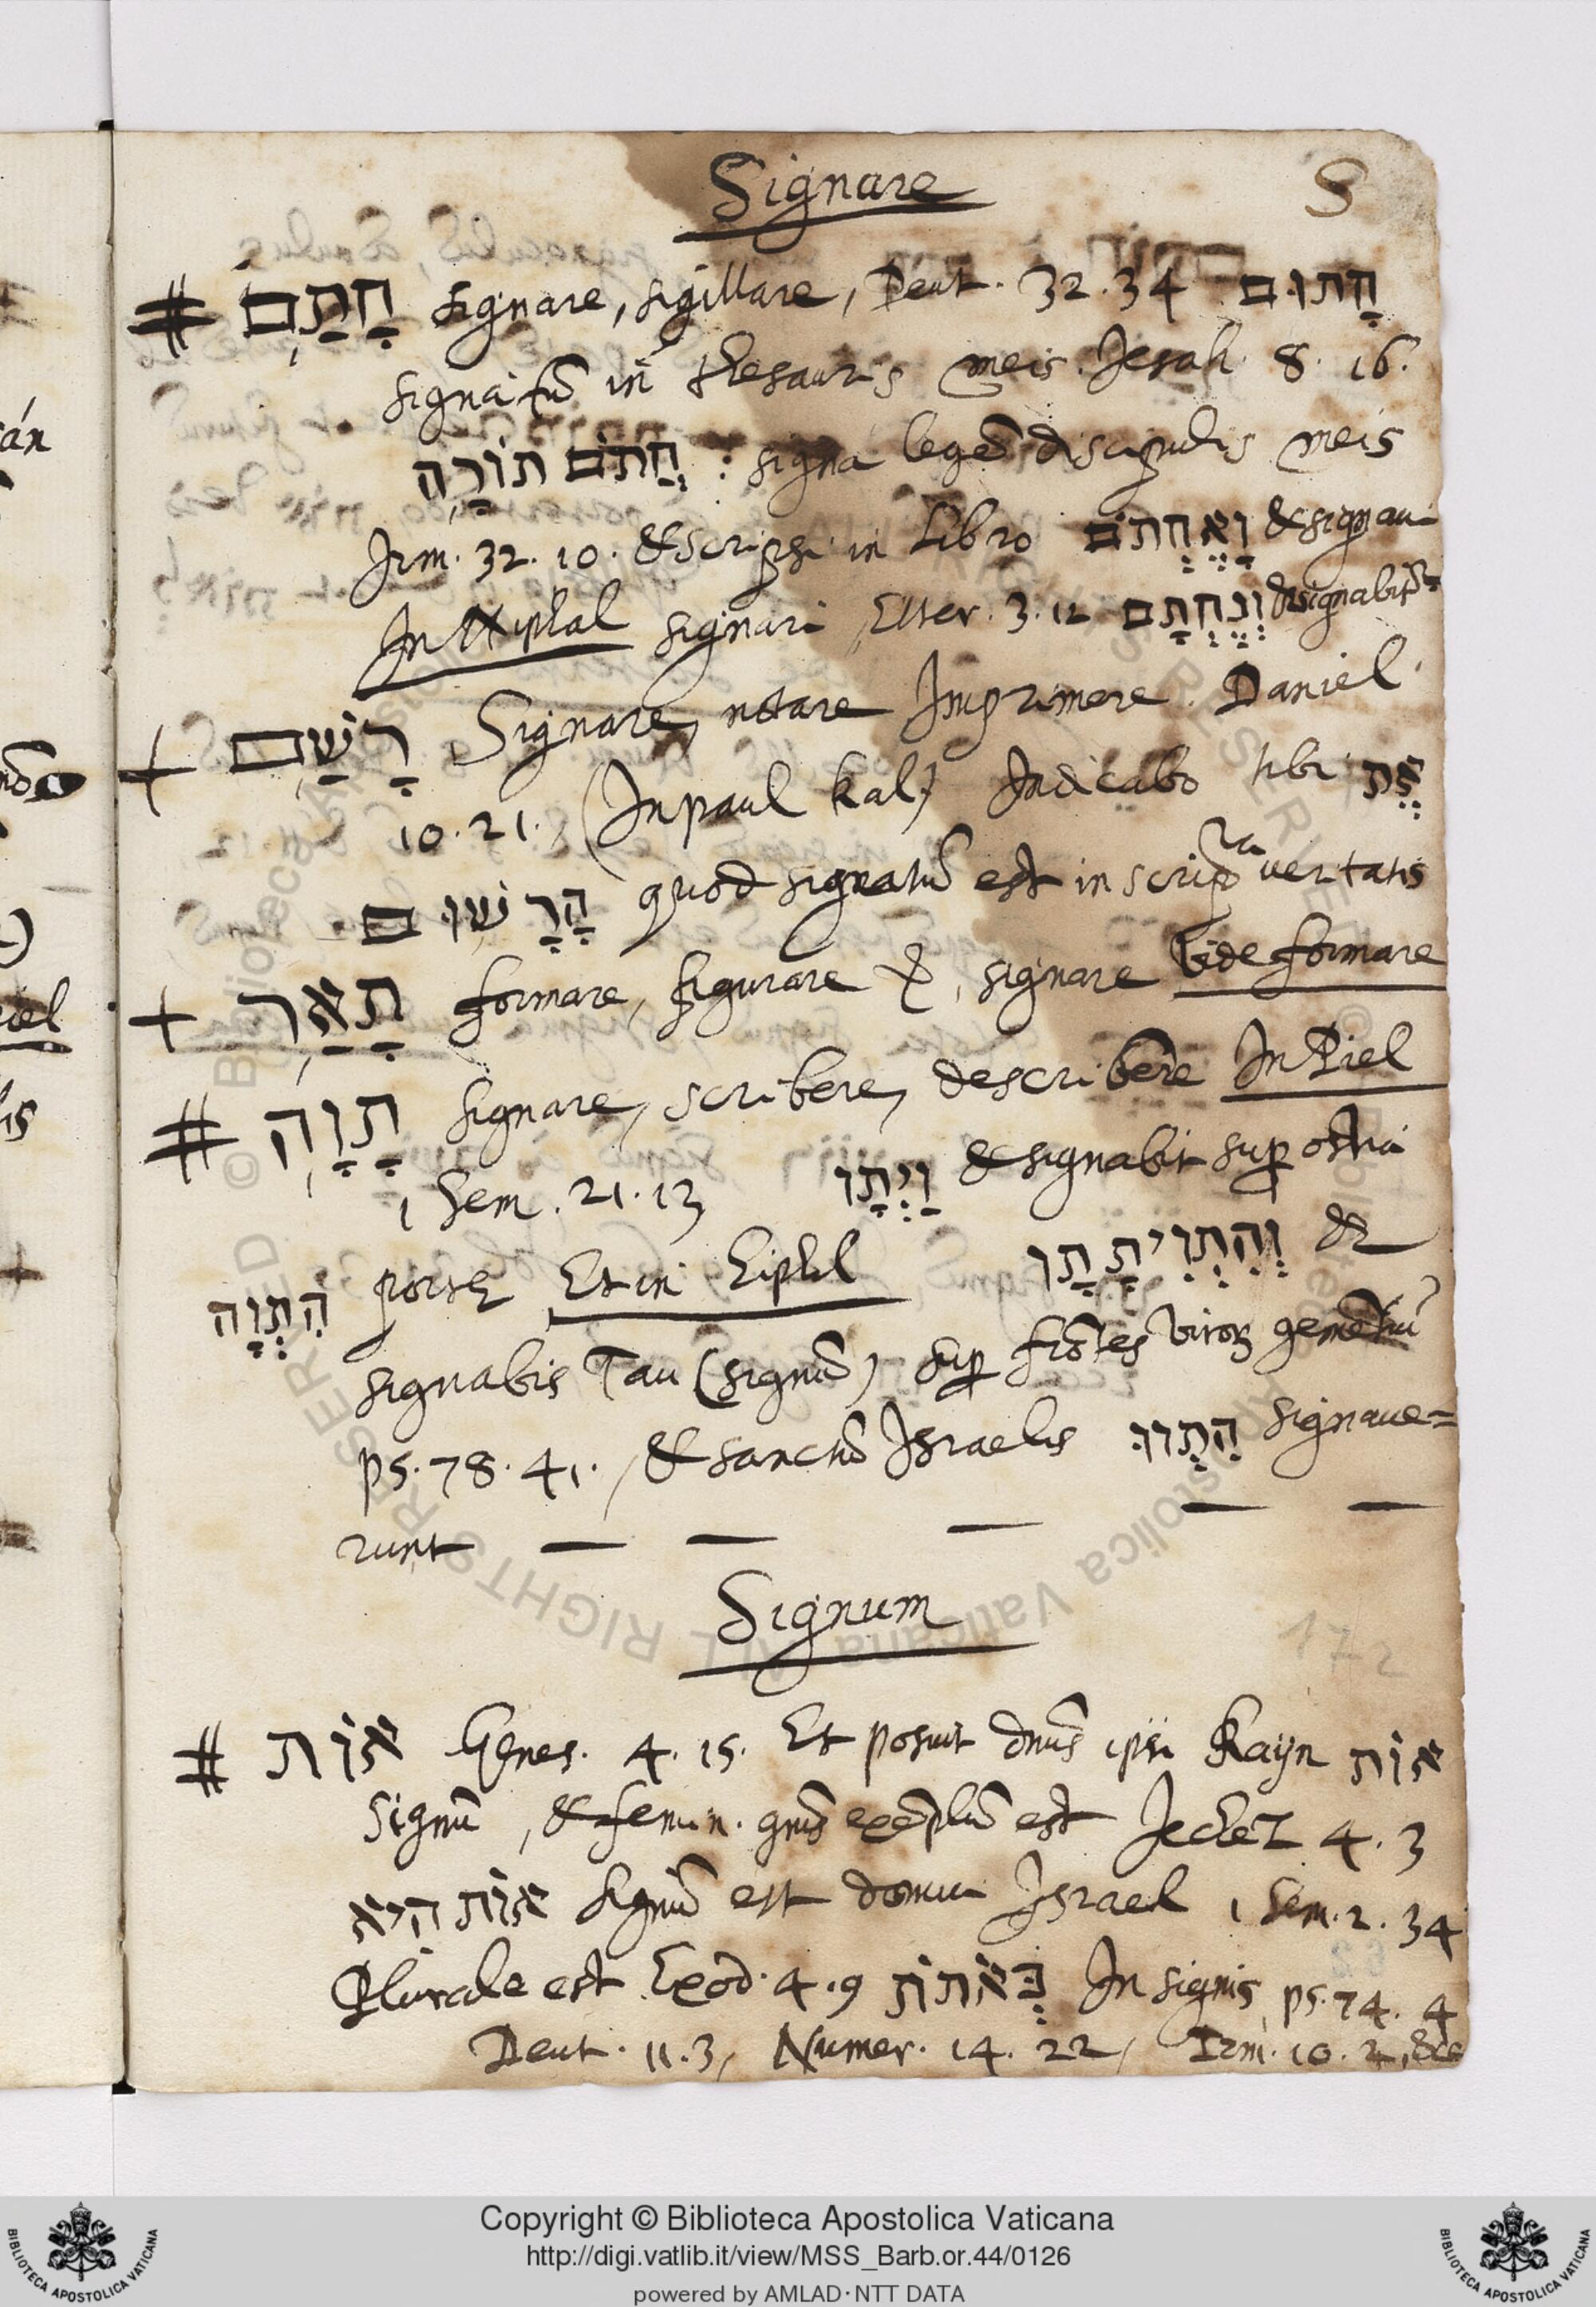 Signare
S
# חָתַם signare, sigillare, Deut. 32.34 חָתוּם
signatũ in thesauris meis. Jesah. 8. 16.
חֲתֹם תּוֹרָה : signa legẽ discipulis meis
Jrm. 32. 10. & scripsi in Libro וָאֶחְתֹּם & signaui
In Niphal signari Ester. 3. 12 וְנֶחְתָּם
+ רָשַׁם Signare, notare Imprimere. Daniel
10. 21. (In paul kal) Indicabo tibi אֶת
הָרָשׁוּם quod signatũ est in scripra veritatis
+ תָאַר formare, figurare &, signare Vide formare
# תָוָה signare, scribere, describere In Piel
1 Sem. 21. 13 וַיְתָו & signabit sup ostia
portę Et in Hiphil וְהִתְוִיתָ תָּו &
הִתְוָה
signabis Tau (signũ) sup frõtes viroꝝ gemẽtiũ
ps. 78. 41. & sanctũ Israelis הִתְווּ signaue=
runt — — — — —
Signum
172
# אוֹת Genes. 4. 15. Et posuit dnũs ipsi Kayn אוֹת
Signũ, & femin. gnũs exẽplũ est Jechez 4. 3
אוֹת הִיא signũ est domui Israel 1 Sem. 2. 34
Plurale est Exod. 4. 9 בְּאֹתוֹת In signis ps. 74. 4
Deut. 11. 3, Numer. 14. 22, Irm. 10. 2, &c
Copyright © Biblioteca Apostolica Vaticana
http://digi.vatlib.it/view/MSS_Barb.or.44/0126
powered by AMLAD·NTT DATA
BIBLIOTECA APOSTOLICA VATICANA
BIBLIOTECA APOSTOLICA VATICANA